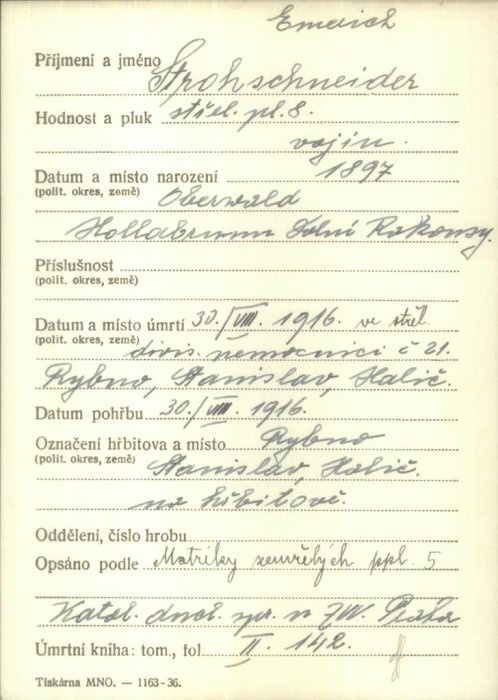 Emerich
Příjmení a jméno Strohschneider
Hodnost a pluk střel. pl. 8.
vojín.
Datum a místo narození 1897
(polit. okres, země) Oberwald
Hollabrunn Dolní Rakousy.
Příslušnost
(polit. okres, země)
Datum a místo úmrtí 30./VIII. 1916. ve střel.
(polit. okres, země) divis. nemocnici č 21.
Rybno, Stanislav, Halič.
Datum pohřbu 30./VIII. 1916.
Označení hřbitova a místo Rybno
(polit. okres, země) Stanislav, Halič.
na hřbitově.
Oddělení, číslo hrobu
Opsáno podle Matriky zemřelých ppl. 5
Katol. duch. spr. Praha
Úmrtní kniha: tom., fol. II. 142.
Tiskárna MNO. — 1163-36.